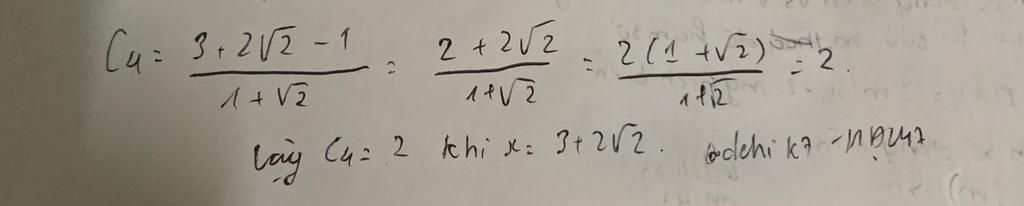 C4 = \frac{3+2\sqrt{2}-1}{1+\sqrt{2}} = \frac{2+2\sqrt{2}}{1+\sqrt{2}} = \frac{2(1+\sqrt{2})}{1+\sqrt{2}} = 2.
Vậy C4 = 2 khi x = 3+2\sqrt{2}.